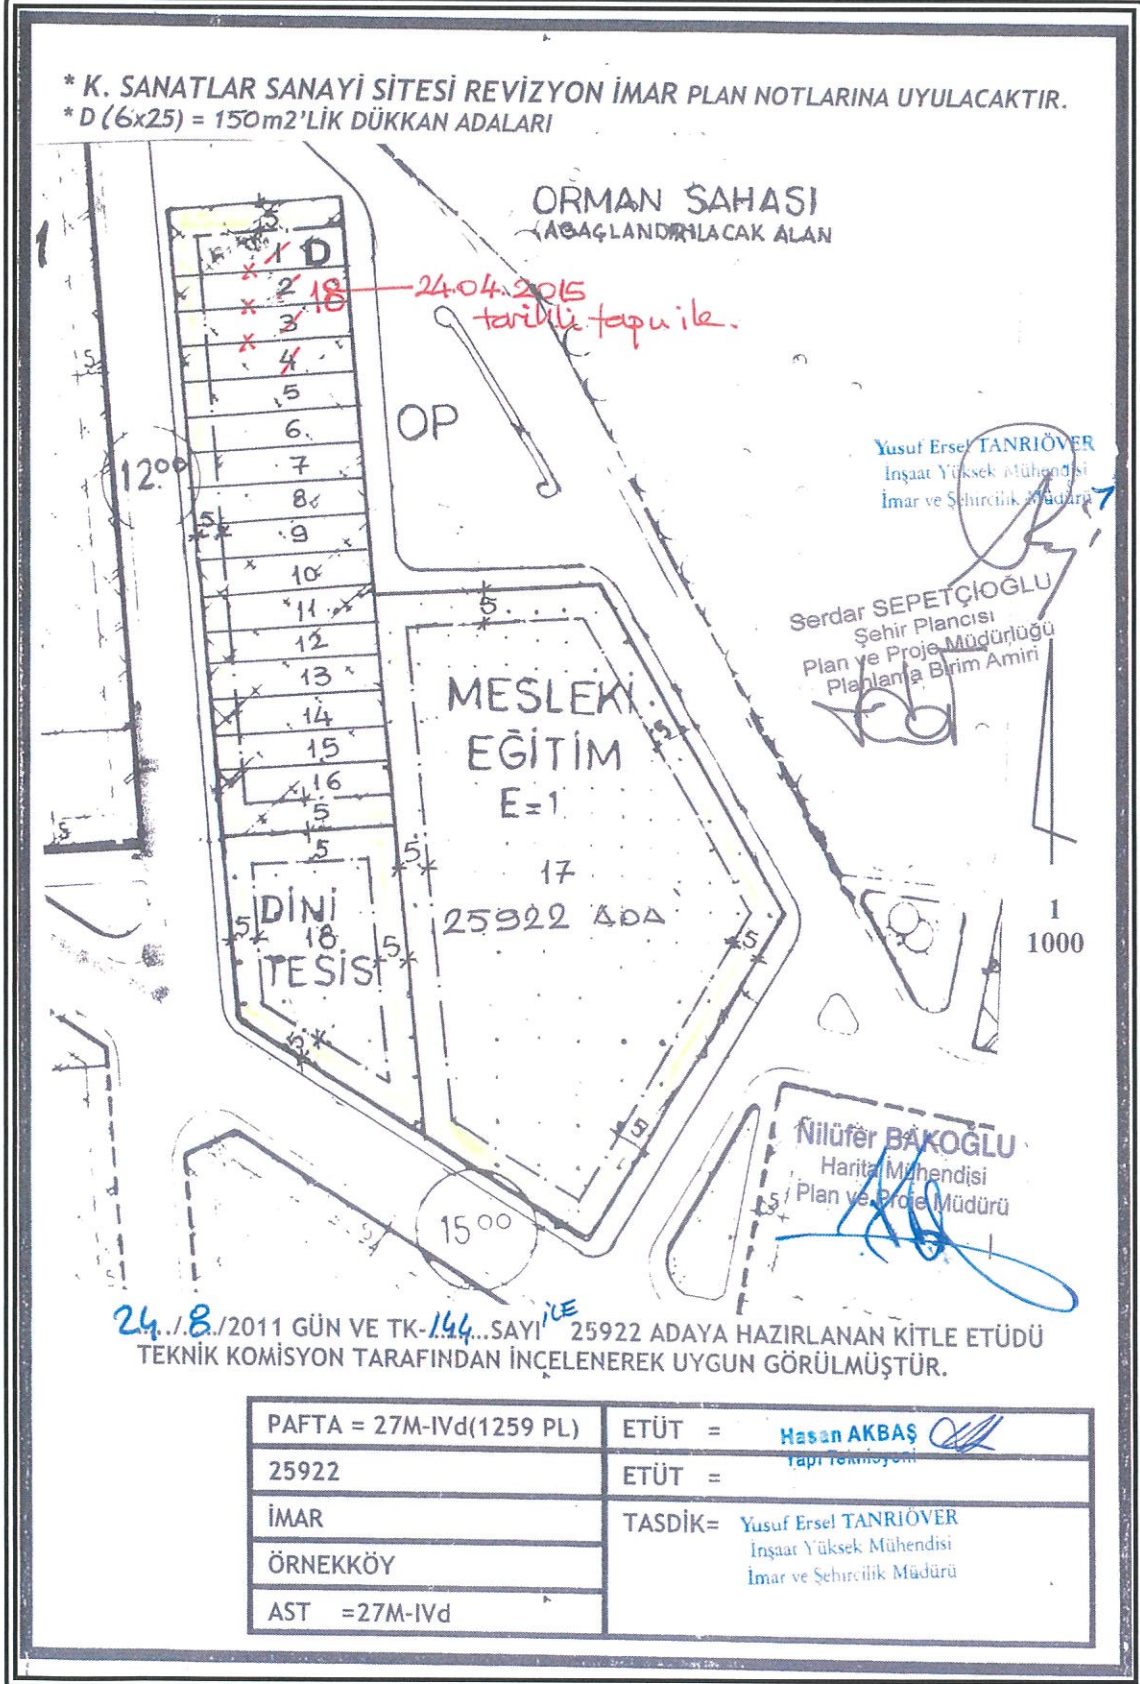 * K. SANATLAR SANAYİ SİTESİ REVİZYON İMAR PLAN NOTLARINA UYULACAKTIR.
* D (6x25) = 150m2'LİK DÜKKAN ADALARI
ORMAN SAHASI
(AĞAÇLANDIRILACAK ALAN
5
1 D
2
18
24.04.2015
tarihli tapu ile.
3
4
5
5
6
OP
7
12.00
8
5
9
10
11
12
13
14
15
16
5
Yusuf Ersel TANRIÖVER
İnşaat Yüksek Mühendisi
İmar ve Şehircilik Müdürü
Serdar SEPETÇİOĞLU
Şehir Plancısı
Plan ve Proje Müdürlüğü
Planlama Birim Amiri
5
MESLEKİ
EĞİTİM
E=1
5
17
25922 ADA
5
5
5
5
DİNİ
18
TESİS
5
5
5
5
5
1
1000
15.00
5
Nilüfer BAKOĞLU
Harita Mühendisi
Plan ve Proje Müdürü
24../.8./2011 GÜN VE TK-144...SAYI İLE 25922 ADAYA HAZIRLANAN KİTLE ETÜDÜ
TEKNİK KOMİSYON TARAFINDAN İNCELENEREK UYGUN GÖRÜLMÜŞTÜR.
PAFTA = 27M-IVd(1259 PL)
ETÜT = Hasan AKBAŞ
Yapı Teknisyeni
25922
ETÜT =
İMAR
TASDİK= Yusuf Ersel TANRIÖVER
İnşaat Yüksek Mühendisi
İmar ve Şehircilik Müdürü
ÖRNEKKÖY
AST =27M-IVd